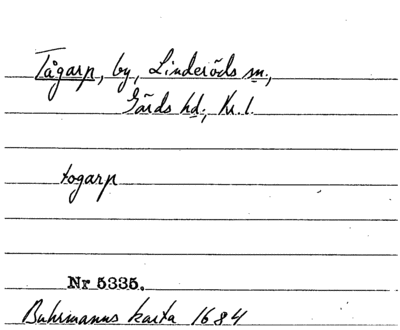 Tågarp, by, Linderöds sn.,
Gärds hd; Kr.l.
togarp
Nr 5335.
Buhrmanns karta 1684